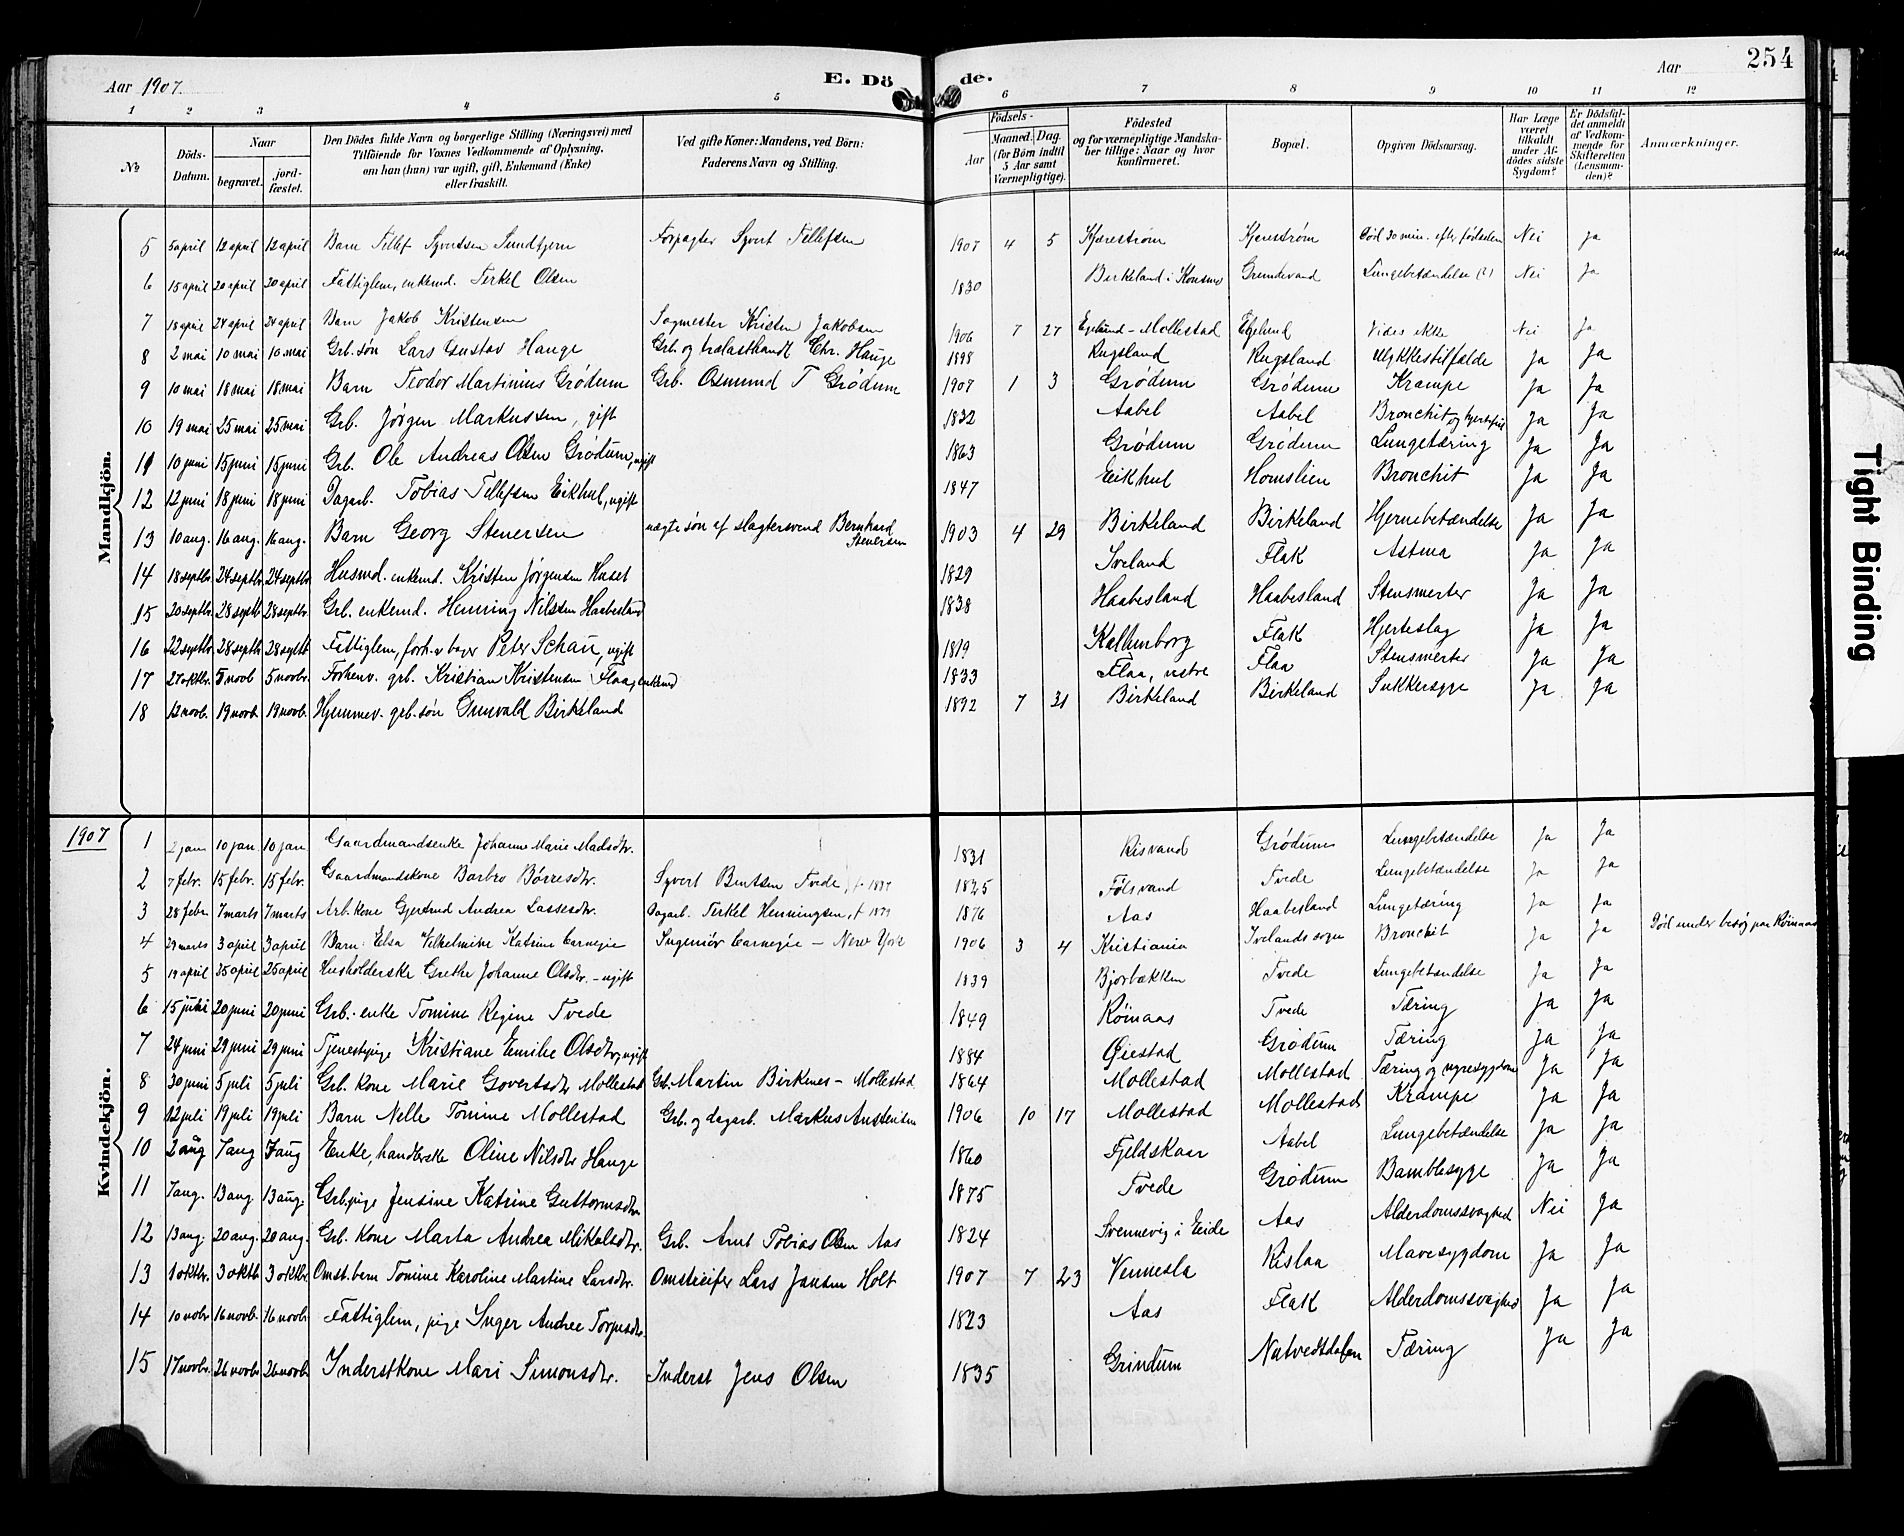 Aar 1907.
E. Dö
de.
Aar
254
1 2 3 4 5 6 7 8 9 10 11 12
№
Döds-Datum.
Naar
begravet.
jordfæstet.
Den Dödes fulde Navn og borgerlige Stilling (Næringsvei) med
Tilföiende for Voxnes Vedkommende af Oplysning,
om han (hun) var ugift, gift, Enkemand (Enke)
eller fraskilt.
Ved gifte Koner: Mandens, ved Börn:
Faderens Navn og Stilling.
Födsels-
Aar
Maaned. Dag.
(for Börn indtil
5 Aar samt
Værnepligtige).
Födested
og for værnepligtige Mandskaber tillige: Naar og hvor
konfirmeret.
Bopæl.
Opgiven Dödsaarsag.
Har Læge
været
tilkaldt
under Afdödes sidste
Sygdom?
Er Dödsfaldet anmeldt
af Vedkommende for
Skifteretten
(Lensmanden)?
Anmærkninger.
Mandkjön.
5 5 april 12 april 12 april Barn Tellef Syvertsen Sundtjern Forpagter Syvert Tellefsen 1907 4 5 Kjærestrøm Kjerestrøm Død 30 min. efter fødselen Nei Ja
6 15 april 20 april 20 april Fattiglem, enkemd. Terkel Olsen 1830 Birkeland i Konsmo Grundevand Lungebetændelse (?) Nei Ja
7 18 april 24 april 24 april Barn Jakob Kristensen Sagmester Kristen Jakobsen 1906 7 27 Egelund - Mollestad Egelund Vides ikke Nei Ja
8 2 mai 10 mai 10 mai Grb. søn Lars Gustav Hauge Grb. og trælasthandl. Chr. Hauge 1898 Rugsland Rugsland Ulykkestilfælde Ja Ja
9 10 mai 18 mai 18 mai Barn Teodor Martinius Grødum Grb. Osmund T Grødum 1907 1 3 Grødum Grødum Krampe Ja Ja
10 19 mai 25 mai 25 mai Grb. Jørgen Markussen, gift 1832 Aabel Aabel Bronchit og hjertefeil Ja Ja
11 10 juni 15 juni 15 juni Grb. Ole Andreas Olsen Grødum, ugift 1863 Grødum Grødum Lungetæring Ja Ja
12 12 juni 18 juni 18 juni Dagarb. Tobias Tellefsen Eikhul, ugift 1847 Eikhul Homslien Bronchit Ja Ja
13 10 aug. 16 aug. 16 aug. Barn Georg Stenersen uægte søn af slagtersvend Bernhard Stenersen 1903 4 29 Birkeland Birkeland Hjernebetændelse Ja Ja
14 18 septbr. 24 septbr. 24 septbr. Husmd. enkemd. Kristen Jørgensen Huset 1829 Iveland Flak Astma Ja Ja
15 20 septbr. 28 septb. 28 septbr. Grb. enkemd. Henning Nilssen Haabesland 1838 Haabesland Haabesland Stensmerter Ja Ja
16 22 septbr. 28 septbr. 28 septbr. Fattiglem, forh.v. baver Peter Schau, ugift 1819 Kallunborg Flak Hjerteslag Ja Ja
17 27 oktbr. 5 novb. 5 novbr. Forhenv. grb. Kristian Kristensen Flaa, enkemd 1833 Flaa, vestre Flaa Stensmerter Ja Ja
18 12 novb. 19 novb. 19 novb. Hjemmev. grb. søn Gunvald Birkeland 1892 7 31 Birkeland Birkeland Sukkersyge Ja Ja
1907
Kvindekjön.
1 2 jan 10 jan. 10 jan Gaardmandsenke Johanne Marie Madsdtr. 1831 Risvand Grødum Lungebetændelse Ja Ja
2 7 febr. 15 febr. 15 febr. Gaardmandskone Barbro Børresdtr. Syvert Bentsen Tvede, f. 1827 1825 Følsvand Tvede Lungebetændelse Ja Ja
3 28 febr. 7 marts 7 marts Arb. kone Gjertrud Andrea Lassesdtr. Dagarb. Terkel Henningsen, f. 1879 1876 Aas Haabesland Lungetæring Ja Ja
4 29 marts 3 april 3 april Barn: Elsa Vilhelmine Katrine Carnegie Ingeniør Carnegie - New York 1906 3 4 Kristiania Ivelands sogn Bronchit Ja Ja Død under besøg paa Rømaas
5 19 april 25 april 25 april Husholderske Grethe Johanne Olsdtr. - ugift 1839 Bjorbækken Tvede Lungebetændelse Ja Ja
6 15 juni 20 juni 20 juni Grb. enke Tomine Regine Tvede 1849 Römaas Tvede Tæring Ja Ja
7 24 juni 29 juni 29 juni Tjenestpige Kristiane Emilie Olsdtr, ugift 1884 Øiestad Grødum Tæring Ja Ja
8 30 juni 5 juli 5 juli Grb. kone Marie Govertsdtr Mollestad Grb. Martin Birkenes - Mollestad 1864 Mollestad Mollestad Tæring og nyresygdom Ja Ja
9 12 juli 19 juli 19 juli Barn Nelle Tomine Mollestad Grb. og dagarb. Markus Anstensen 1906 10 17 Mollestad Mollestad Krampe Ja Ja
10 2 aug 7 aug 7 aug Enke, handlerske Oline Nilsdtr Hauge 1860 Fjeldskaar Aabel Lungebetændelse Ja Ja
11 7 aug. 13 aug. 13 aug. Grb. pige Jensine Katrine Guttormsdtr. 1875 Tvede Grødum Bamblesyge Ja Ja
12 13 aug. 20 aug. 20 aug. Grb. kone Marta Andrea Mikalsdtr. Grb. Arnt Tobias Olsen Aas 1824 Svennevig i Eide Aas Alderdomssvaghed Nei Ja
13 1 oktbr. 3 oktb. 3 oktbr. Omst. barn Tomine Karoline Martine Larsdtr. Omstreifer Lars Jansen Holt 1907 7 23 Vennesla Rislaa Mavesygdom Ja Ja
14 10 nobr. 16 novb. 16 novbr. Fattiglem, pige Inger Andrea Torjusdtr. 1823 Aas Flak Alderdomssvaghed Ja Ja
15 17 novbr. 26 novbr. 26 novbr. Inderstkone Mari Simonsdtr. Inderst Jens Olsen 1835 Grindum Natvedtdalen Tæring Ja Ja
Tight Binding